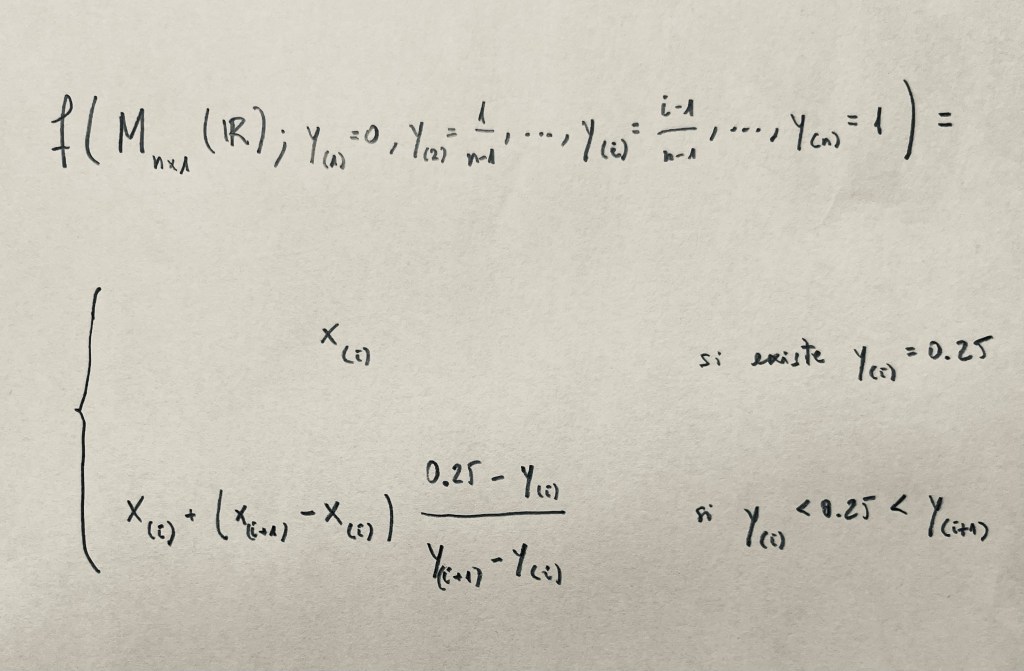 f( M_{n×1} (ℝ); Y_{(1)}=0, Y_{(2)}=\frac{1}{n-1}, ..., Y_{(i)}=\frac{i-1}{n-1}, ..., Y_{(n)}=1 ) =
x_{(i)} si existe Y_{(i)}=0.25
x_{(i)} + (x_{(i+1)} - x_{(i)}) \frac{0.25 - Y_{(i)}}{Y_{(i+1)} - Y_{(i)}} si Y_{(i)} < 0.25 < Y_{(i+1)}